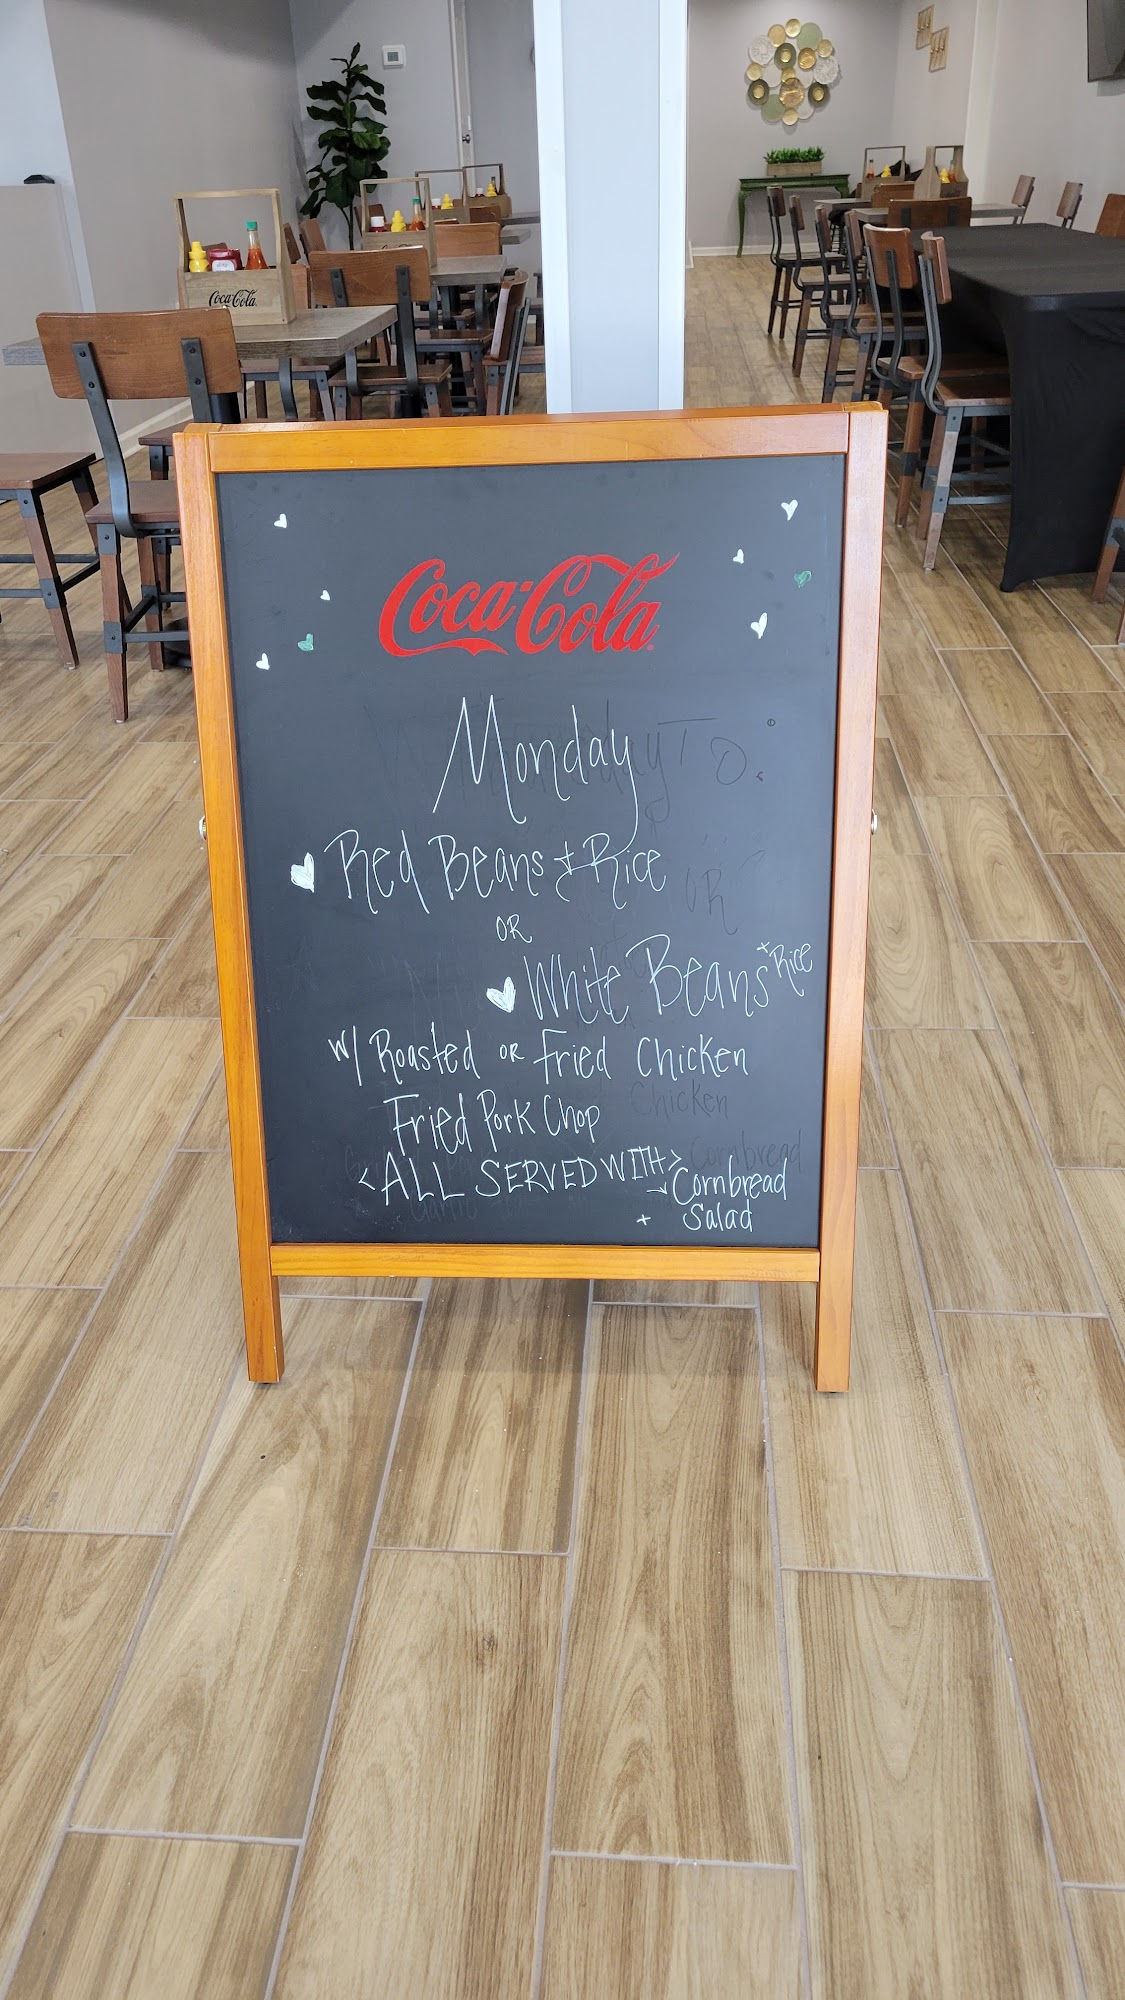 Coca-Cola
Coca-Cola
Monday
Red Beans + Rice
OR
White Beans + Rice
w/ Roasted OR Fried Chicken
Fried Pork Chop
<ALL SERVED WITH>
→ Cornbread
+ Salad
OR
Chicken
Cornbread